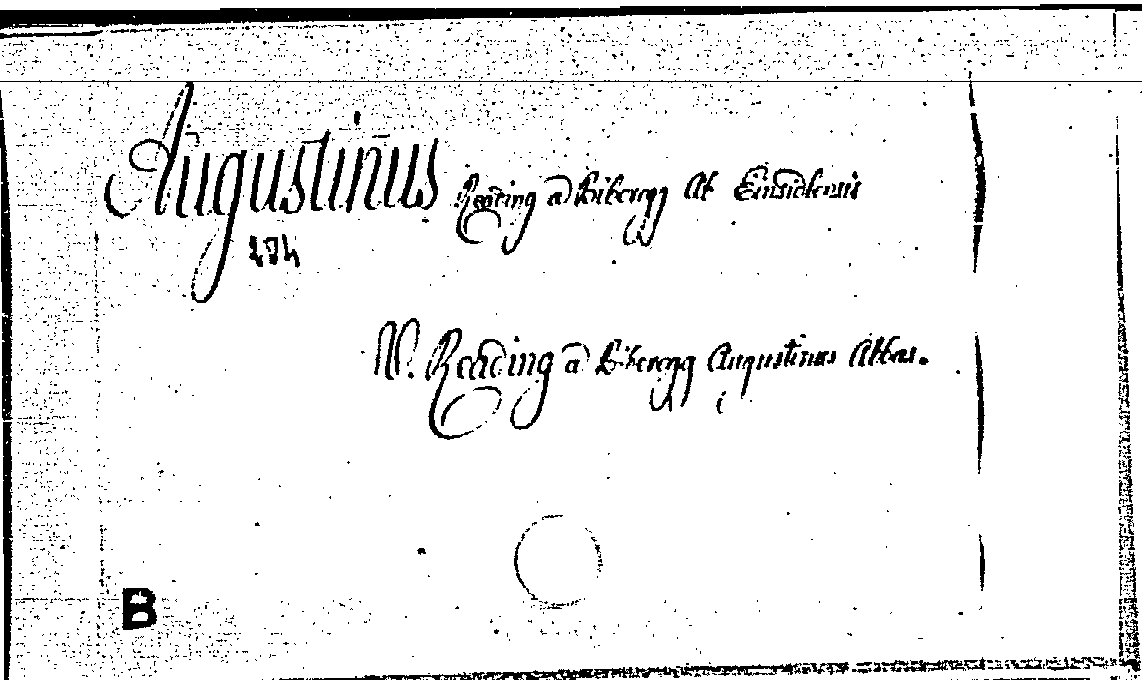 Augustinus Reading a Biberegg Ab Einsidlensis
284
V. Reading a Biberegg Augustinus Abbas.
B